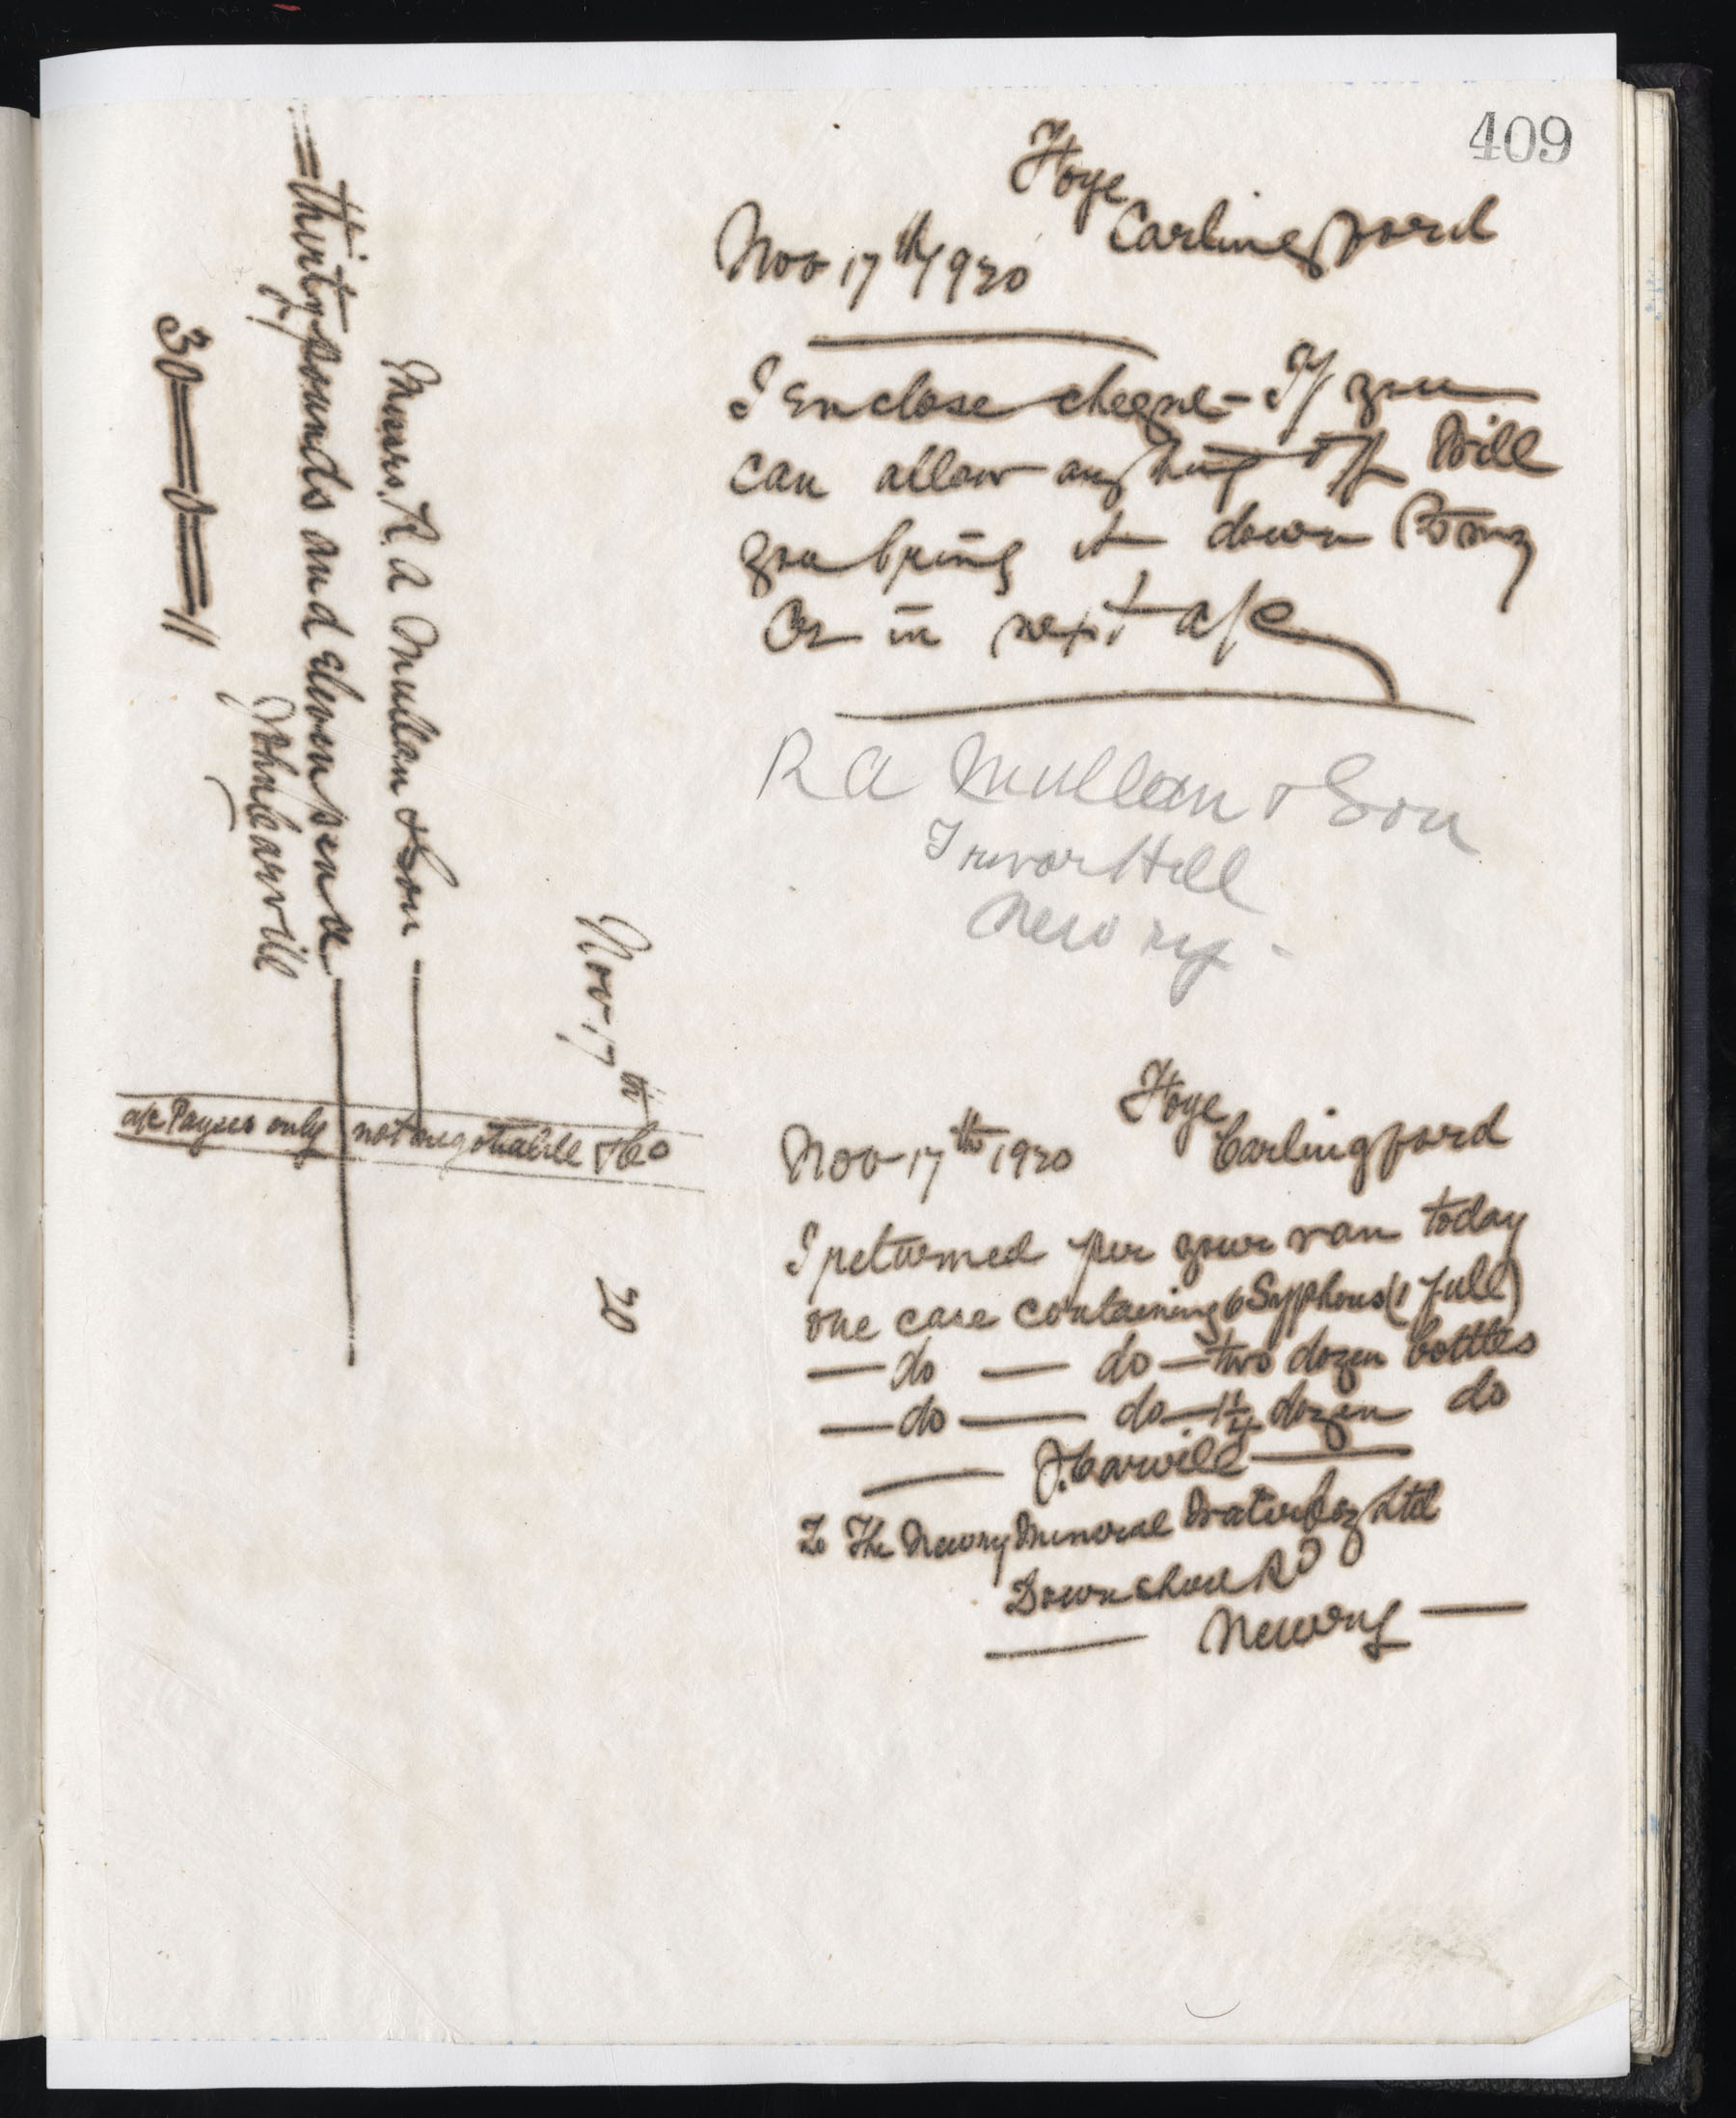 409
Foye
Carlingford
Nov 17th/1920
I Enclose cheque - If you
can allow anything off will
you bring it down to my
Or in next a/c
R A Mullan & Son
Trevor Hill
Newry -
Foye
Carlingford
Nov 17th 1920
I returned per your van today
one case containing 6 Syphons (1 full)
— do — do — two dozen bottles
— do — do — 1 1/4 dozen do
J. Carvill
To The Newry Mineral Water Coy Ltd
Downshire Rd
Newry
Nov 17th 20
Messrs. R A Mullan & Son
thirty pounds and Eleven pence
John Carvill
30 = 0 = 11
a/c Payees only not negotiable & Co